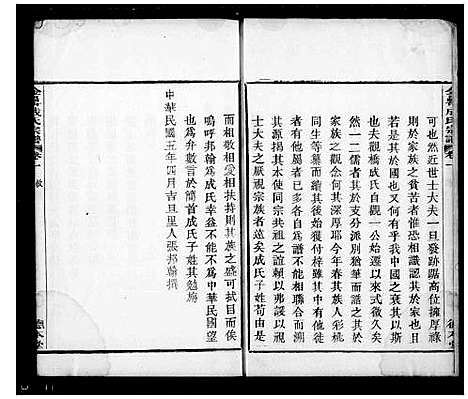 可也然近世士大夫一旦發跡踞高位擁厚祿
則於家族之貧苦者惟恐相識認其於家族且
然況於國家又何有乎我中國之衰其以斯
也夫觀橋成氏自觀一公始遷以來式微久矣
然一二儒者其於支分派別猶筆而譜之對於
家族之觀念何其深厚耶今年春其族人彩桃
同生等纂而續其後始獲付梓雖其中有他徙
者有他屬者已多各自為譜不能相聯合而溯
其源揭其本使同宗共祖之誼賴以弗諼以視
士大夫之厭視宗族者遠矣成氏子姓苟由是
而相敬相愛相扶持則其族之盛可拭目而俟
嗚呼邦翰為成氏幸益不能不為中華民國望
也爲弁數言於簡首成氏子姓其勉旃
中華民國五年四月吉旦里人張邦翰撰
成氏宗譜
卷一
敘
成氏宗譜
卷一